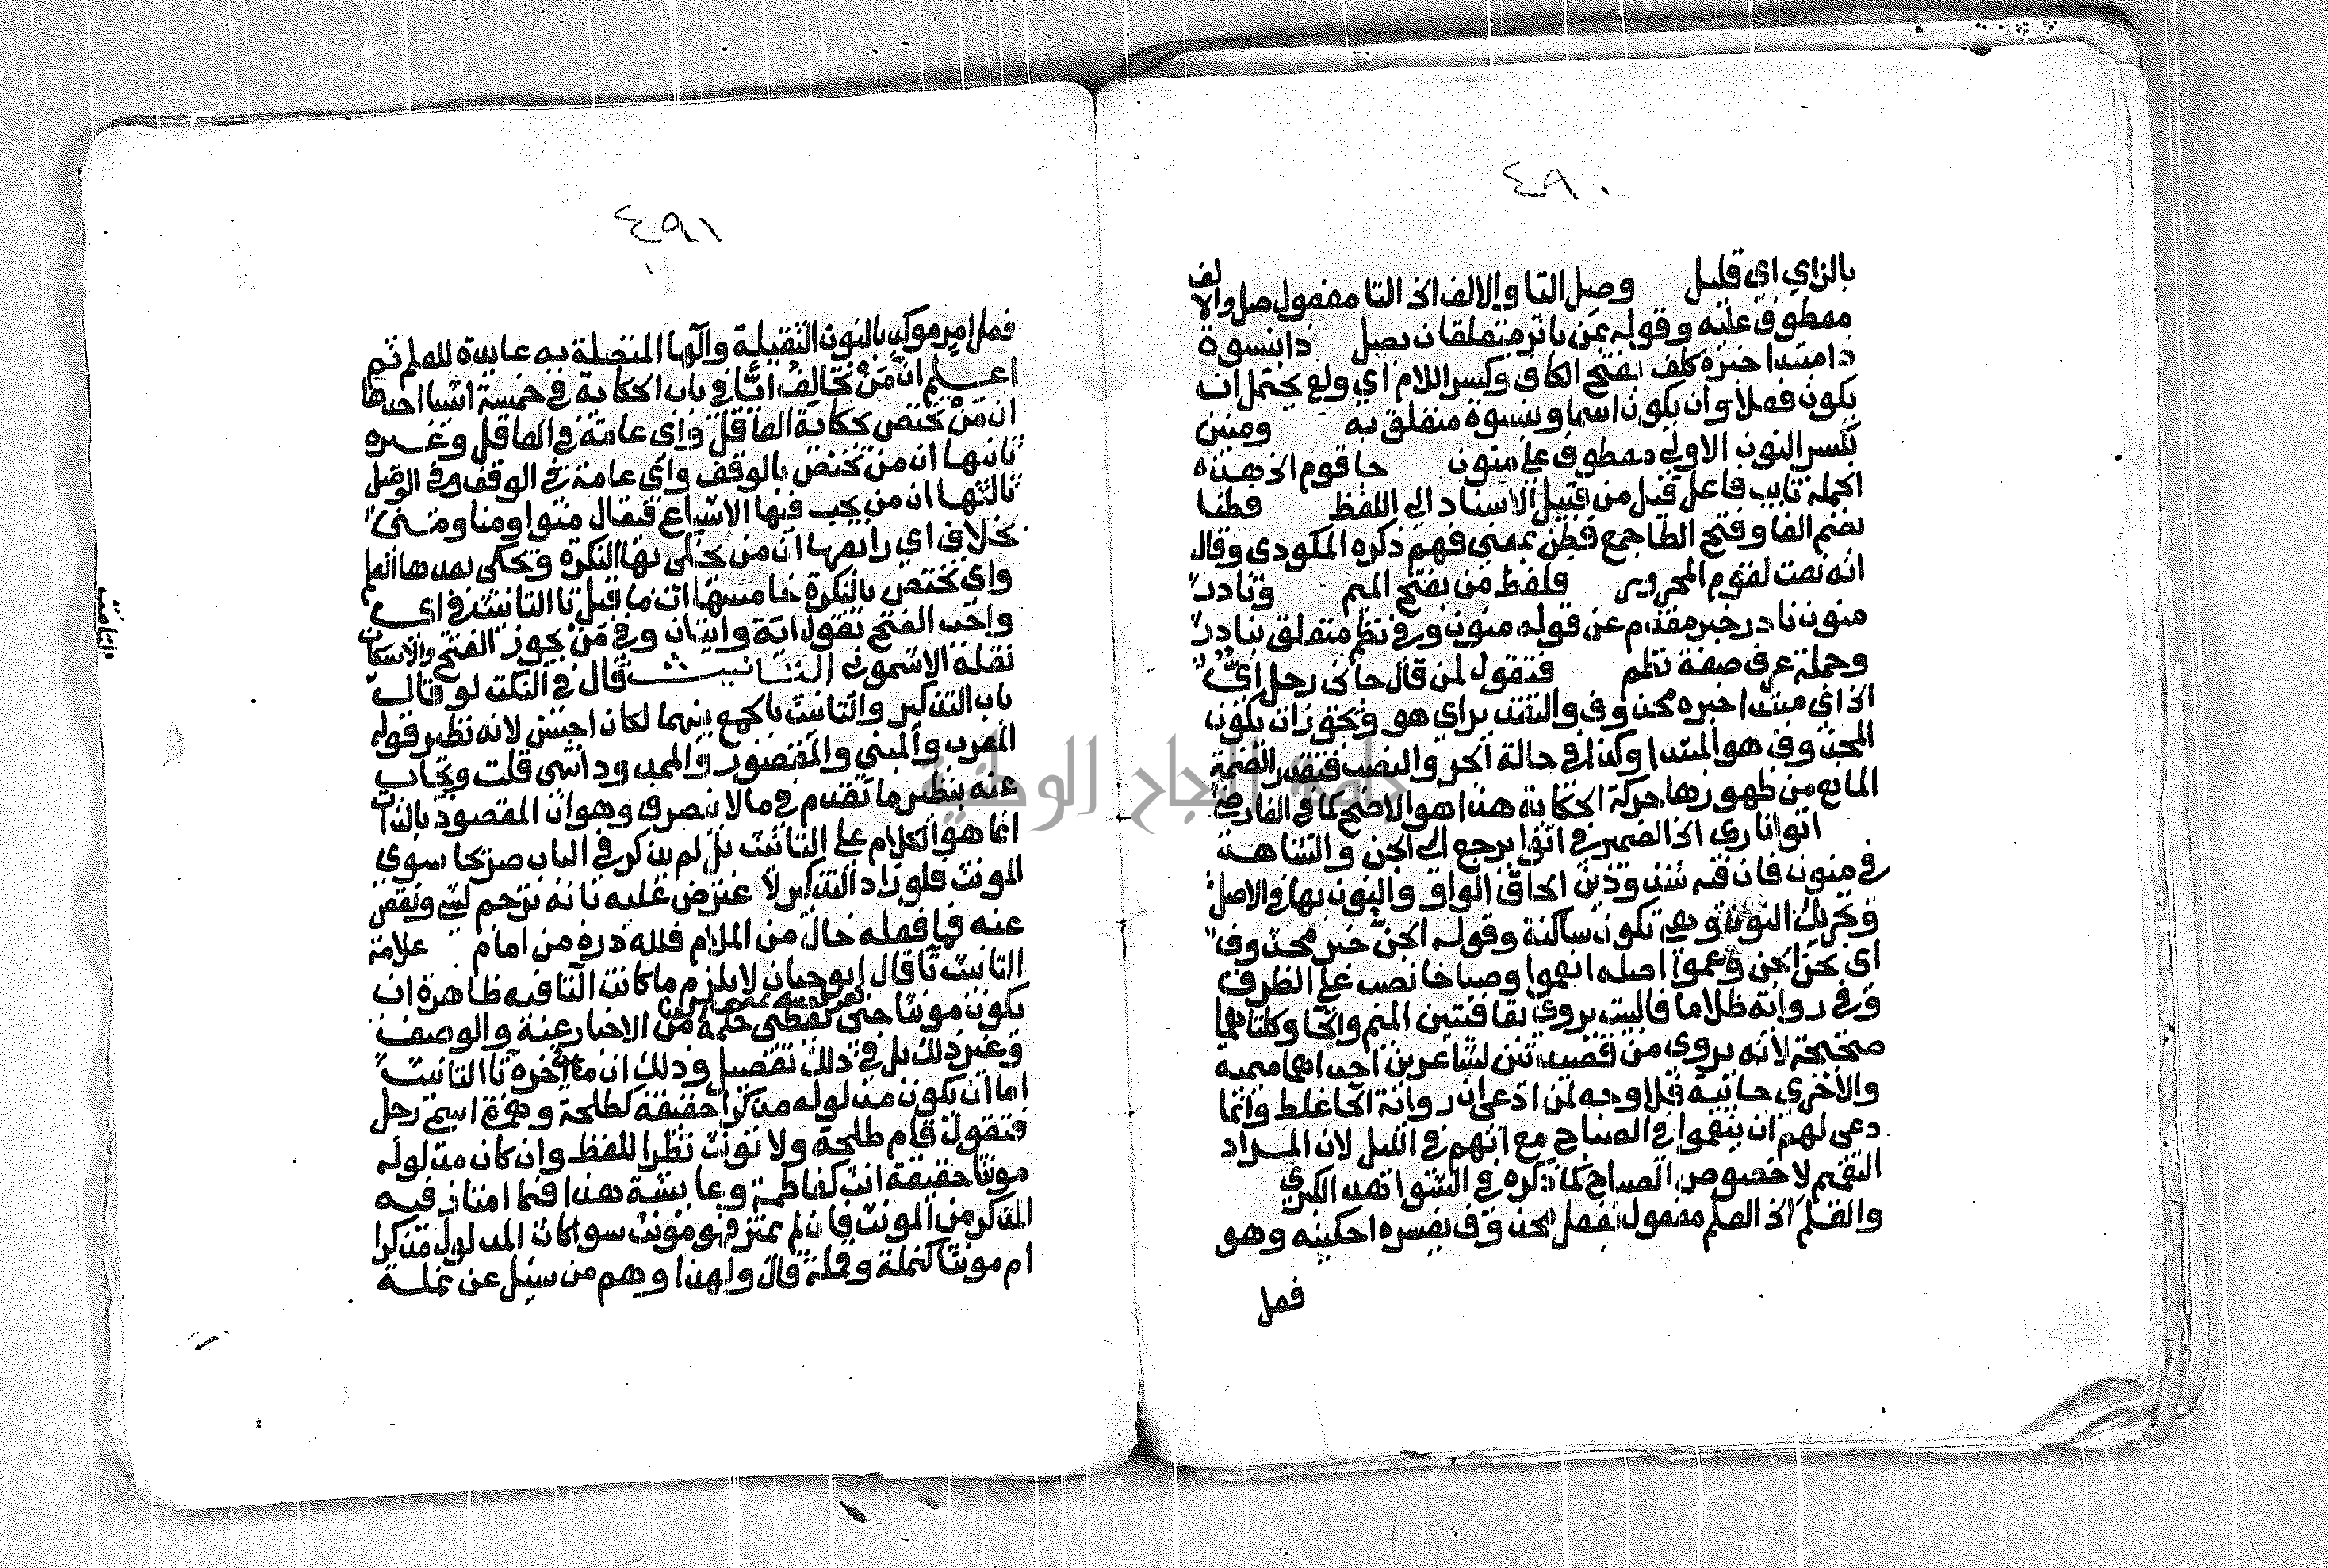 ٤٩٠
بالزاي اي قليل وصل التا والالف الخ التا مفعول صل والالف
معطوف عليه وقوله بمن باثر متعلقان بصل ذا بنسوة
ذا مبتدا خبره كلف بفتح الكاف وكسر اللام اي ولع يحتمل ان
يكون فعلا وان يكون اسما وبنسوة متعلق به ومنين
بكسر النون الاولي معطوف علي منون جا قوم الخ هذه
الجملة نايب فاعل قيل من قبيل الاسناد الي اللفظ فطنا
بضم الفا وفتح الطا جمع فطن بمعني فهم ذكره المكودي وقال
انه نعت لقوم المجرور فلفظ من بفتح الميم ونادر
منون نادر خبر مقدم عن قوله منون وفي نظم متعلق بنادر
وجملة عرف صفة نظم فتقول لمن قال جاني رجل ايٌّ
الخ اي مبتدا خبره محذوف والتقدير اي هو ويجوز ان يكون
المحذوف هو المبتدا وكذا في حالة الجر والنصب فتقدر الضمة
المانع من ظهورها حركة الحكاية هذا هو الاصح كما في الفارضي
اتوا ناري الخ الضمير في اتوا يرجع الي الجن والشاهد
في منون فان فيه شذوذين الحاق الواو والنون بها في الاصل
وتحريك النون وهي تكون ساكنة وقوله الجن خبر محذوف
اي نحن الجن وعموا اصله انعموا وصباحا نصب علي الظرف
وفي رواية ظلاما فالبيت يروي بقافيتين الميم والحا وكلتاهما
صحيحة لانه يروي من قصيدتين لشاعرين احداهما ميمية
والاخري حائية فلا وجه لمن ادعي ان رواية الحا غلط وانما
دعي لهم ان ينعموا في الصباح مع انهم في الليل لان المراد
التعميم لا خصوص الصباح كما ذكره في الشواهد الكبري
والعلم الخ العلم مفعول بفعل محذوف يفسره احكينه وهو
فعل
٤٩١
فعل امر موكد بالنون الثقيلة والها المتصلة به عايدة للعلم ثم
اعلم ان مَنْ تخالف ايًّا في باب الحكاية في خمسة اشيا احدها
ان مَنْ تختص بحكاية العاقل واي عامة في العاقل وغيره
ثانيها ان من تختص بالوقف واي عامة في الوقف وفي الوصل
ثالثها ان من يجب فيها الاشباع فيقال منوا ومنا ومني
بخلاف اي رابعها ان من يحكي بها النكرة ويحكي بعدها العلم
واي تختص بالنكرة خامسها ان ما قبل تا التانيث في اي
واجب الفتح تقول اية وايتان وفي من يجوز الفتح والاسكان
نقله الاشموني التانيث قال في النكت لو قال
باب التذكير والتانيث بالجمع بينهما لكان احسن لانه نظير قوله
المعرب والمبني والمقصور والممدود انتهي قلت ويجاب
عنه بنظير ما تقدم في ما لا ينصرف وهو ان المقصود بالذات
انما هو الكلام علي التانيث بل لم يذكر في الباب صريحا سوي
المونث فلو زاد التذكير لاعترض عليه بانه ترجم لشي ونقص
عنه فما فعله خال من الملام فلله دره من امام علامة
التانيث تا قال ابو حيان لا يلزم ما كانت التا فيه ظاهرة ان
يكون مونثا حتي يعطي حكمه من الاخبار عنه والوصف
وغير ذلك بل في ذلك تفصيل وذلك ان ما اخره تا التانيث
اما ان يكون مدلوله مذكرا حقيقة كطلحة وهو اسم رجل
فتقول قام طلحة ولا تونث نظرا للفظ وان كان مدلوله
مونثا حقيقة انث كفاطمة وعايشة هذا فيما امتاز فيه
المذكر من المونث فان لم يمتز فهو مونث سوا كان المدلول مذكرا
ام مونثا كنملة وقملة قال ولهذا وهم من سئل عن نملة
جامعة النجاح الوطنية